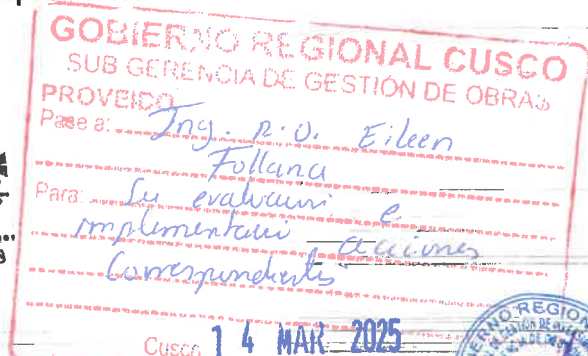 GOBIERNO REGIONAL CUSCO
SUB GERENCIA DE GESTIÓN DE OBRAS
PROVEIDO
Pase a: Ing. R.O. Eileen
Follana
Para: Su evaluacuni e
implementacui acciones
Correspondientes
Cusco, 14 MAR 2025
REGION